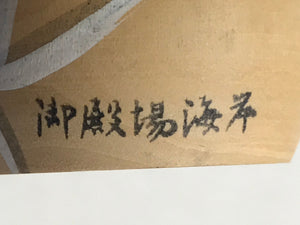 御殿場海岸